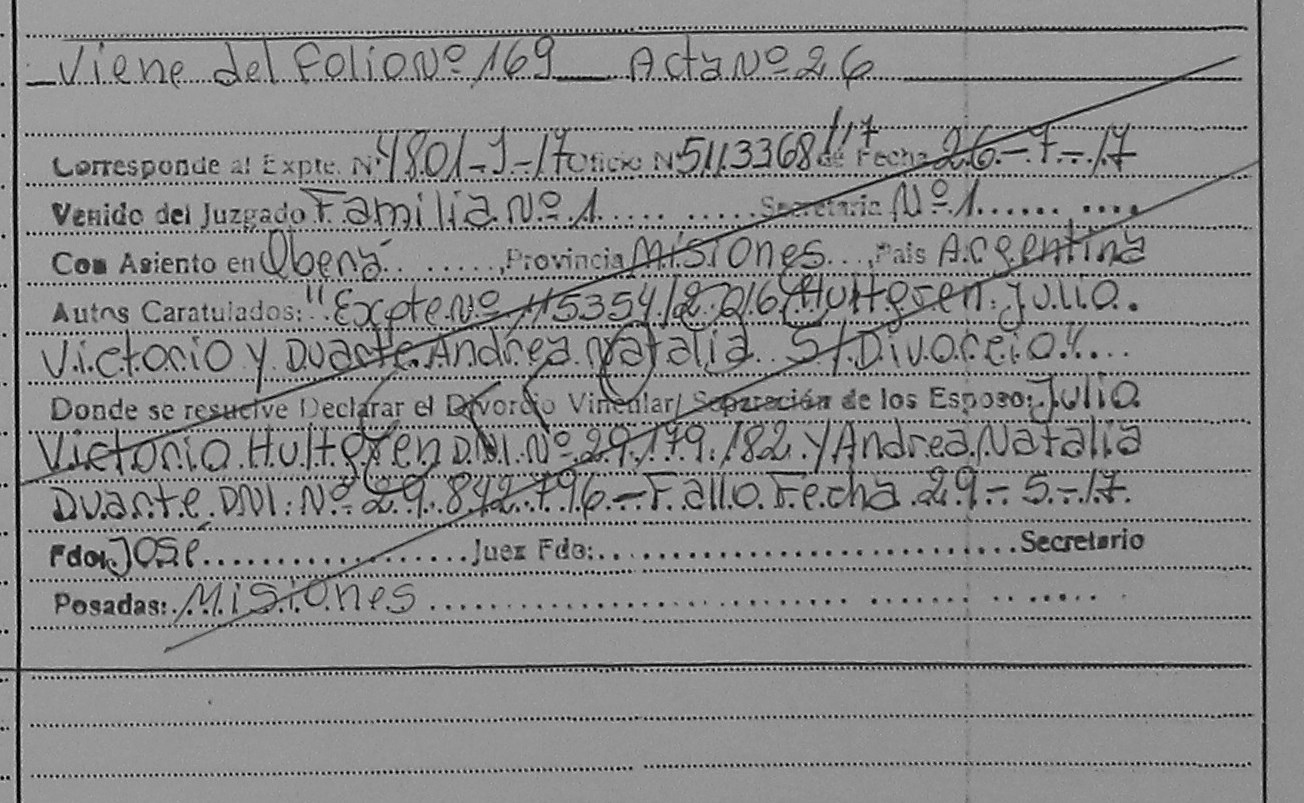 Viene del Folio Nº 169 Acta Nº 26
Corresponde al Expte. Nº 4801-J-17 Oficio Nº 5113368/17 de Fecha 26-7-17
Venido del Juzgado Familia Nº 1 Secretaria Nº 1
Con Asiento en Oberá, Provincia Misiones, Pais Argentina
Autos Caratulados: "Expte Nº 115354/2016 Hultgren Julio
Victorio y Duarte Andrea Natalia S/Divorcio"
Donde se resuelve Declarar el Divorcio Vincular/ Separación de los Esposo: Julio
Victorio Hultgren DNI. Nº 29.179.182 y Andrea Natalia
Duarte DNI. Nº 29.842.796 - Fallo Fecha 29-5-17.
Fdo: José Juez Fdo: Secretario
Posadas: Misiones